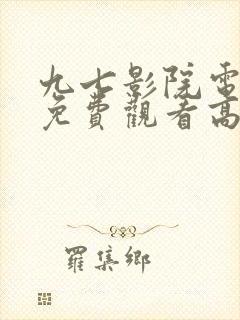 九七影院電
免費觀看高
羅集鄉